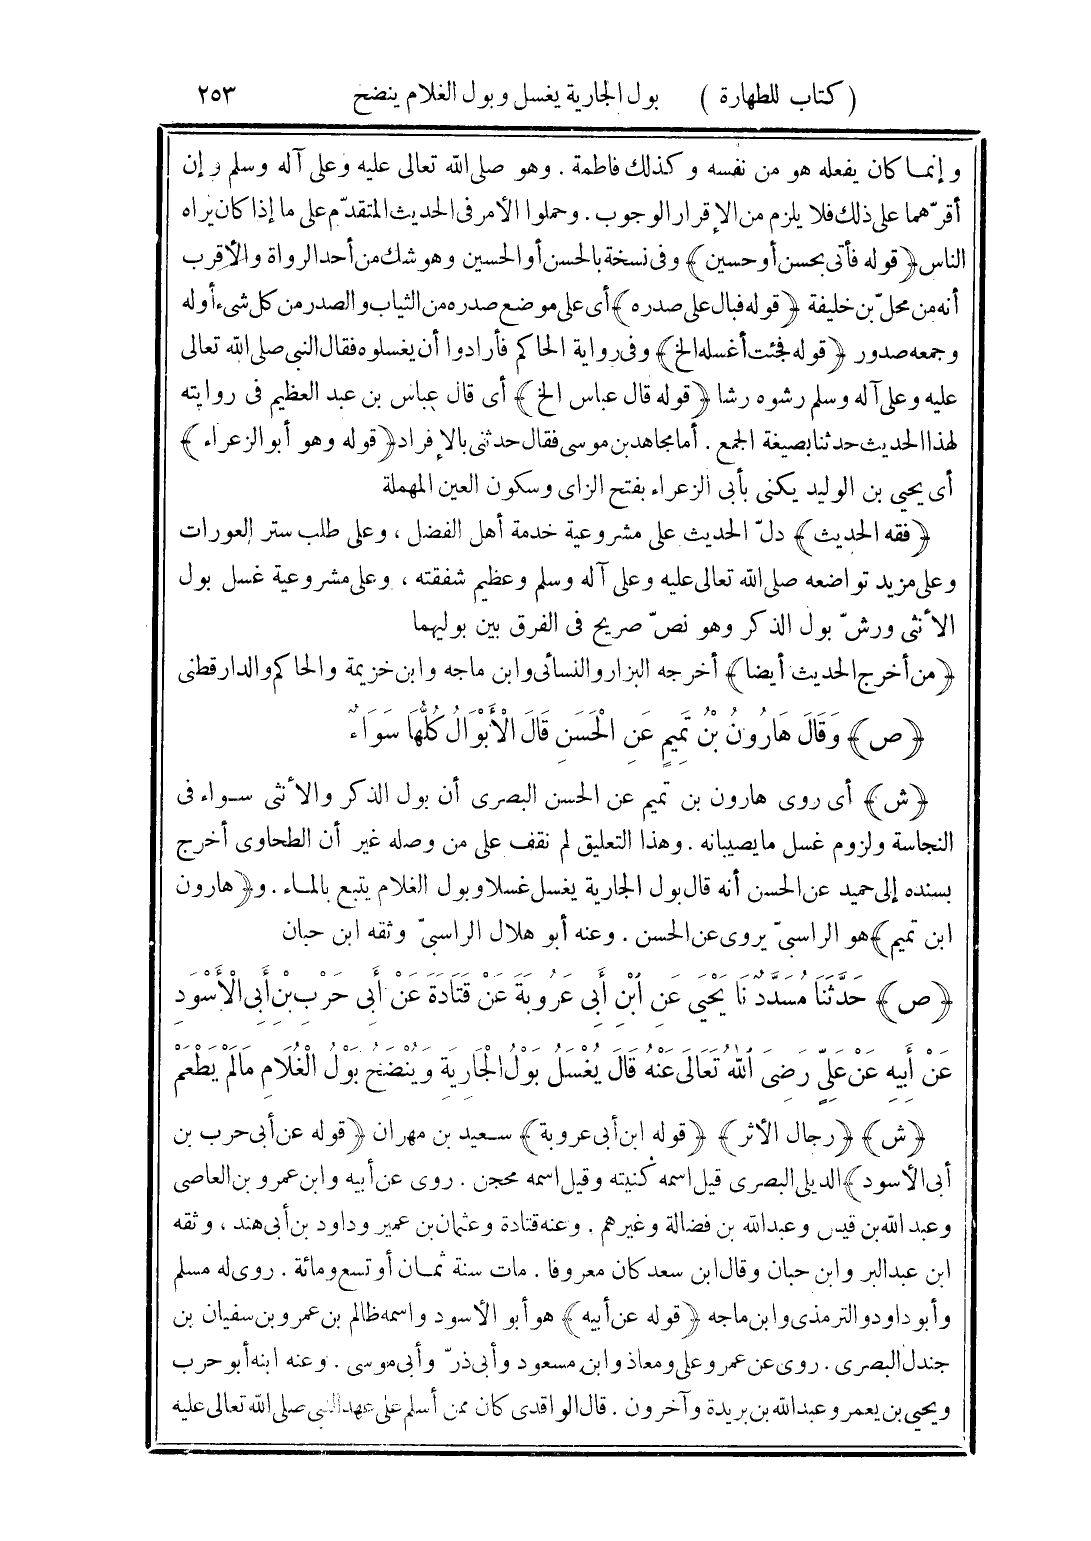 ( كتاب للطهارة ) بول الجارية يغسل وبول الغلام ينضح ٢٥٣
وإنما كان يفعله هو من نفسه وكذلك فاطمة . وهو صلى الله تعالى عليه وعلى آله وسلم وإن
أقرّهما على ذلك فلا يلزم من الإقرار الوجوب . وحملوا الأمر فى الحديث المتقدّم على ما إذا كان يراه
الناس ﴿قوله فأتى بحسن أو حسين﴾ وفى نسخة بالحسن أو الحسين وهو شك من أحد الرواة والأقرب
أنه من محلّ بن خليفة ﴿قوله فبال على صدره﴾ أى على موضع صدره من الثياب والصدر من كل شىء أوله
وجمعه صدور ﴿قوله فجئت أغسله الخ﴾ وفى رواية الحاكم فأرادوا أن يغسلوه فقال النبى صلى الله تعالى
عليه وعلى آله وسلم رشوه رشا ﴿قوله قال عباس الخ﴾ أى قال عباس بن عبد العظيم فى روايته
لهذا الحديث حدثنا بصيغة الجمع . أما مجاهد بن موسى فقال حدثنى بالإفراد ﴿قوله وهو أبو الزعراء﴾
أى يحيى بن الوليد يكنى بأبى الزعراء بفتح الزاى وسكون العين المهملة
﴿فقه الحديث﴾ دلّ الحديث على مشروعية خدمة أهل الفضل ، وعلى طلب ستر العورات
وعلى مزيد تواضعه صلى الله تعالى عليه وعلى آله وسلم وعظيم شفقته ، وعلى مشروعية غسل بول
الأنثى ورشّ بول الذكر وهو نصّ صريح فى الفرق بين بوليهما
﴿من أخرج الحديث أيضا﴾ أخرجه البزار والنسائى وابن ماجه وابن خزيمة والحاكم والدارقطنى
﴿ص﴾ وَقَالَ هَارُونُ بْنُ تَمِيمٍ عَنِ الْحَسَنِ قَالَ الْأَبْوَالُ كُلُّهَا سَوَاءٌ
﴿ش﴾ أى روى هارون بن تميم عن الحسن البصرى أن بول الذكر والأنثى سواء فى
النجاسة ولزوم غسل ما يصيبانه . وهذا التعليق لم نقف على من وصله غير أن الطحاوى أخرج
بسنده إلى حميد عن الحسن أنه قال بول الجارية يغسل غسلا وبول الغلام يتبع بالماء . و﴿هارون
ابن تميم﴾ هو الراسبىّ يروى عن الحسن . وعنه أبو هلال الراسبىّ وثقه ابن حبان
﴿ص﴾ حَدَّثَنَا مُسَدَّدٌ نَا يَحْيَى عَنِ ابْنِ أَبِى عَرُوبَةَ عَنْ قَتَادَةَ عَنْ أَبِى حَرْبِ بْنِ أَبِى الْأَسْوَدِ
عَنْ أَبِيهِ عَنْ عَلِىٍّ رَضِىَ اللهُ تَعَالَى عَنْهُ قَالَ يُغْسَلُ بَوْلُ الْجَارِيَةِ وَيُنْضَحُ بَوْلُ الْغُلَامِ مَالَمْ يَطْعَمْ
﴿ش﴾ ﴿رجال الأثر﴾ ﴿قوله ابن أبى عروبة﴾ سعيد بن مهران ﴿قوله عن أبى حرب بن
أبى الأسود﴾ الديلى البصرى قيل اسمه كنيته وقيل اسمه محجن . روى عن أبيه وابن عمرو بن العاصى
وعبد الله بن قيس وعبد الله بن فضالة وغيرهم . وعنه قتادة وعثمان بن عمير وداود بن أبى هند ، وثقه
ابن عبد البر وابن حبان وقال ابن سعد كان معروفا . مات سنة ثمان أو تسع ومائة . روى له مسلم
وأبو داود والترمذى وابن ماجه ﴿قوله عن أبيه﴾ هو أبو الأسود واسمه ظالم بن عمرو بن سفيان بن
جندل البصرى . روى عن عمر وعلى ومعاذ وابن مسعود وأبى ذرّ وأبى موسى . وعنه ابنه أبو حرب
ويحيى بن يعمر وعبد الله بن بريدة وآخرون . قال الواقدى كان ممن أسلم على عهد النبى صلى الله تعالى عليه